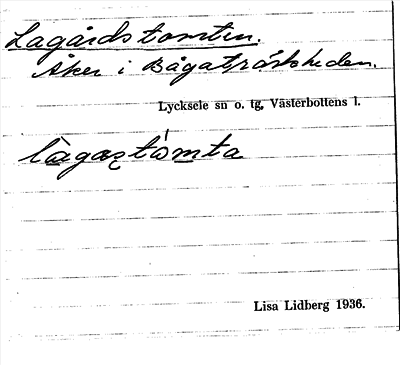 Lagårdstomten.
Åker i Bågaträskheden.
Lycksele sn o. tg, Västerbottens l.
làgaʂtómta
Lisa Lidberg 1936.